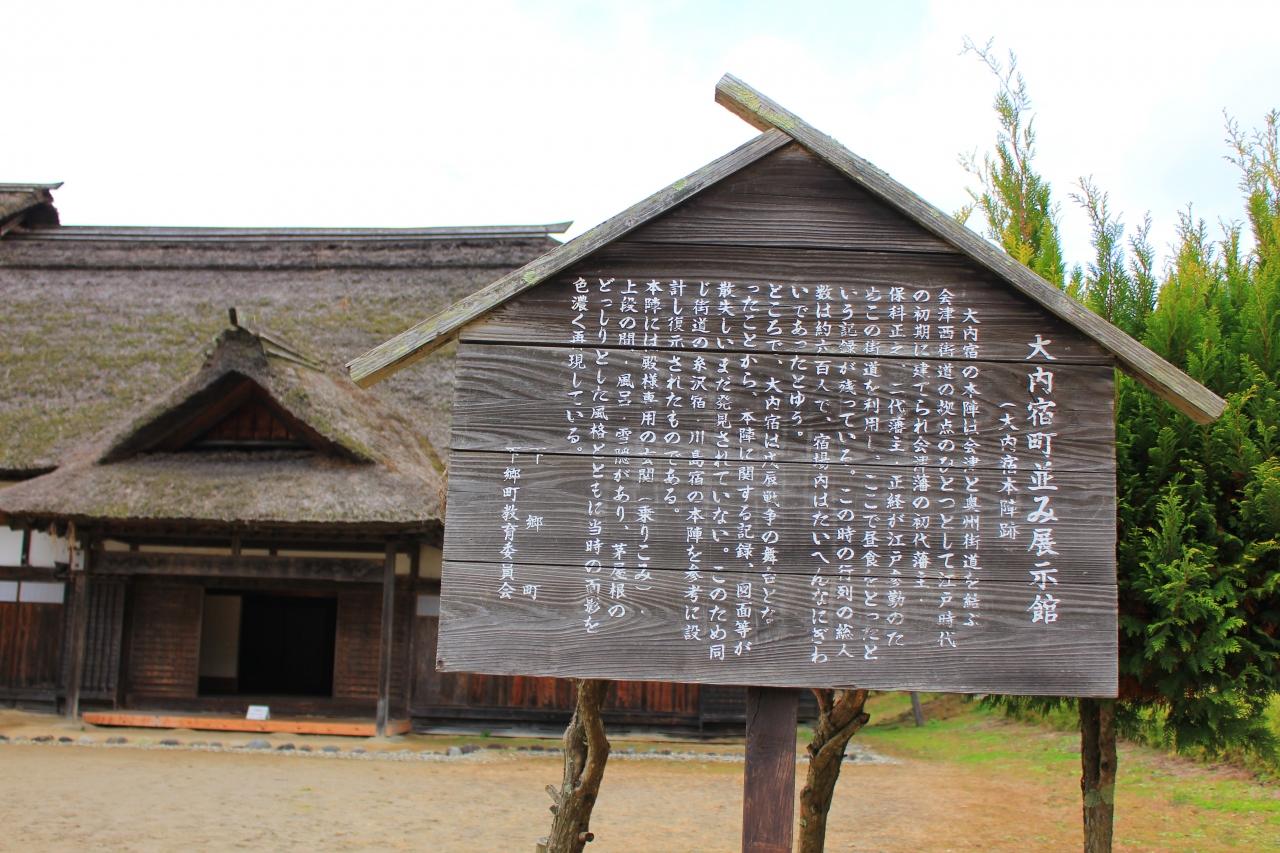 大内宿町並み展示館
（大内宿本陣跡）
大内宿の本陣は会津と奥州街道を結ぶ
会津西街道の拠点のひとつとして江戸時代
の初期に建てられ会津藩の初代藩主・
保科正之、二代藩主・正経が江戸参勤のた
めこの街道を利用し、ここで昼食をとったと
いう記録が残っている。この時の行列の総人
数は約六百人で、宿場内はたいへんなにぎわ
いであったとゆう。
ところで、大内宿は戊辰戦争の舞台とな
ったことから、本陣に関する記録、図面等が
散失しいまだ発見されていない。このため同
じ街道の糸沢宿・川島宿の本陣を参考に設
計し復元されたものである。
本陣には殿様専用の玄関（乗りこみ）・
上段の間、風呂、雪隠があり、茅屋根の
どっしりとした風格とともに当時の面影を
色濃く再現している。
下郷町
下郷町教育委員会